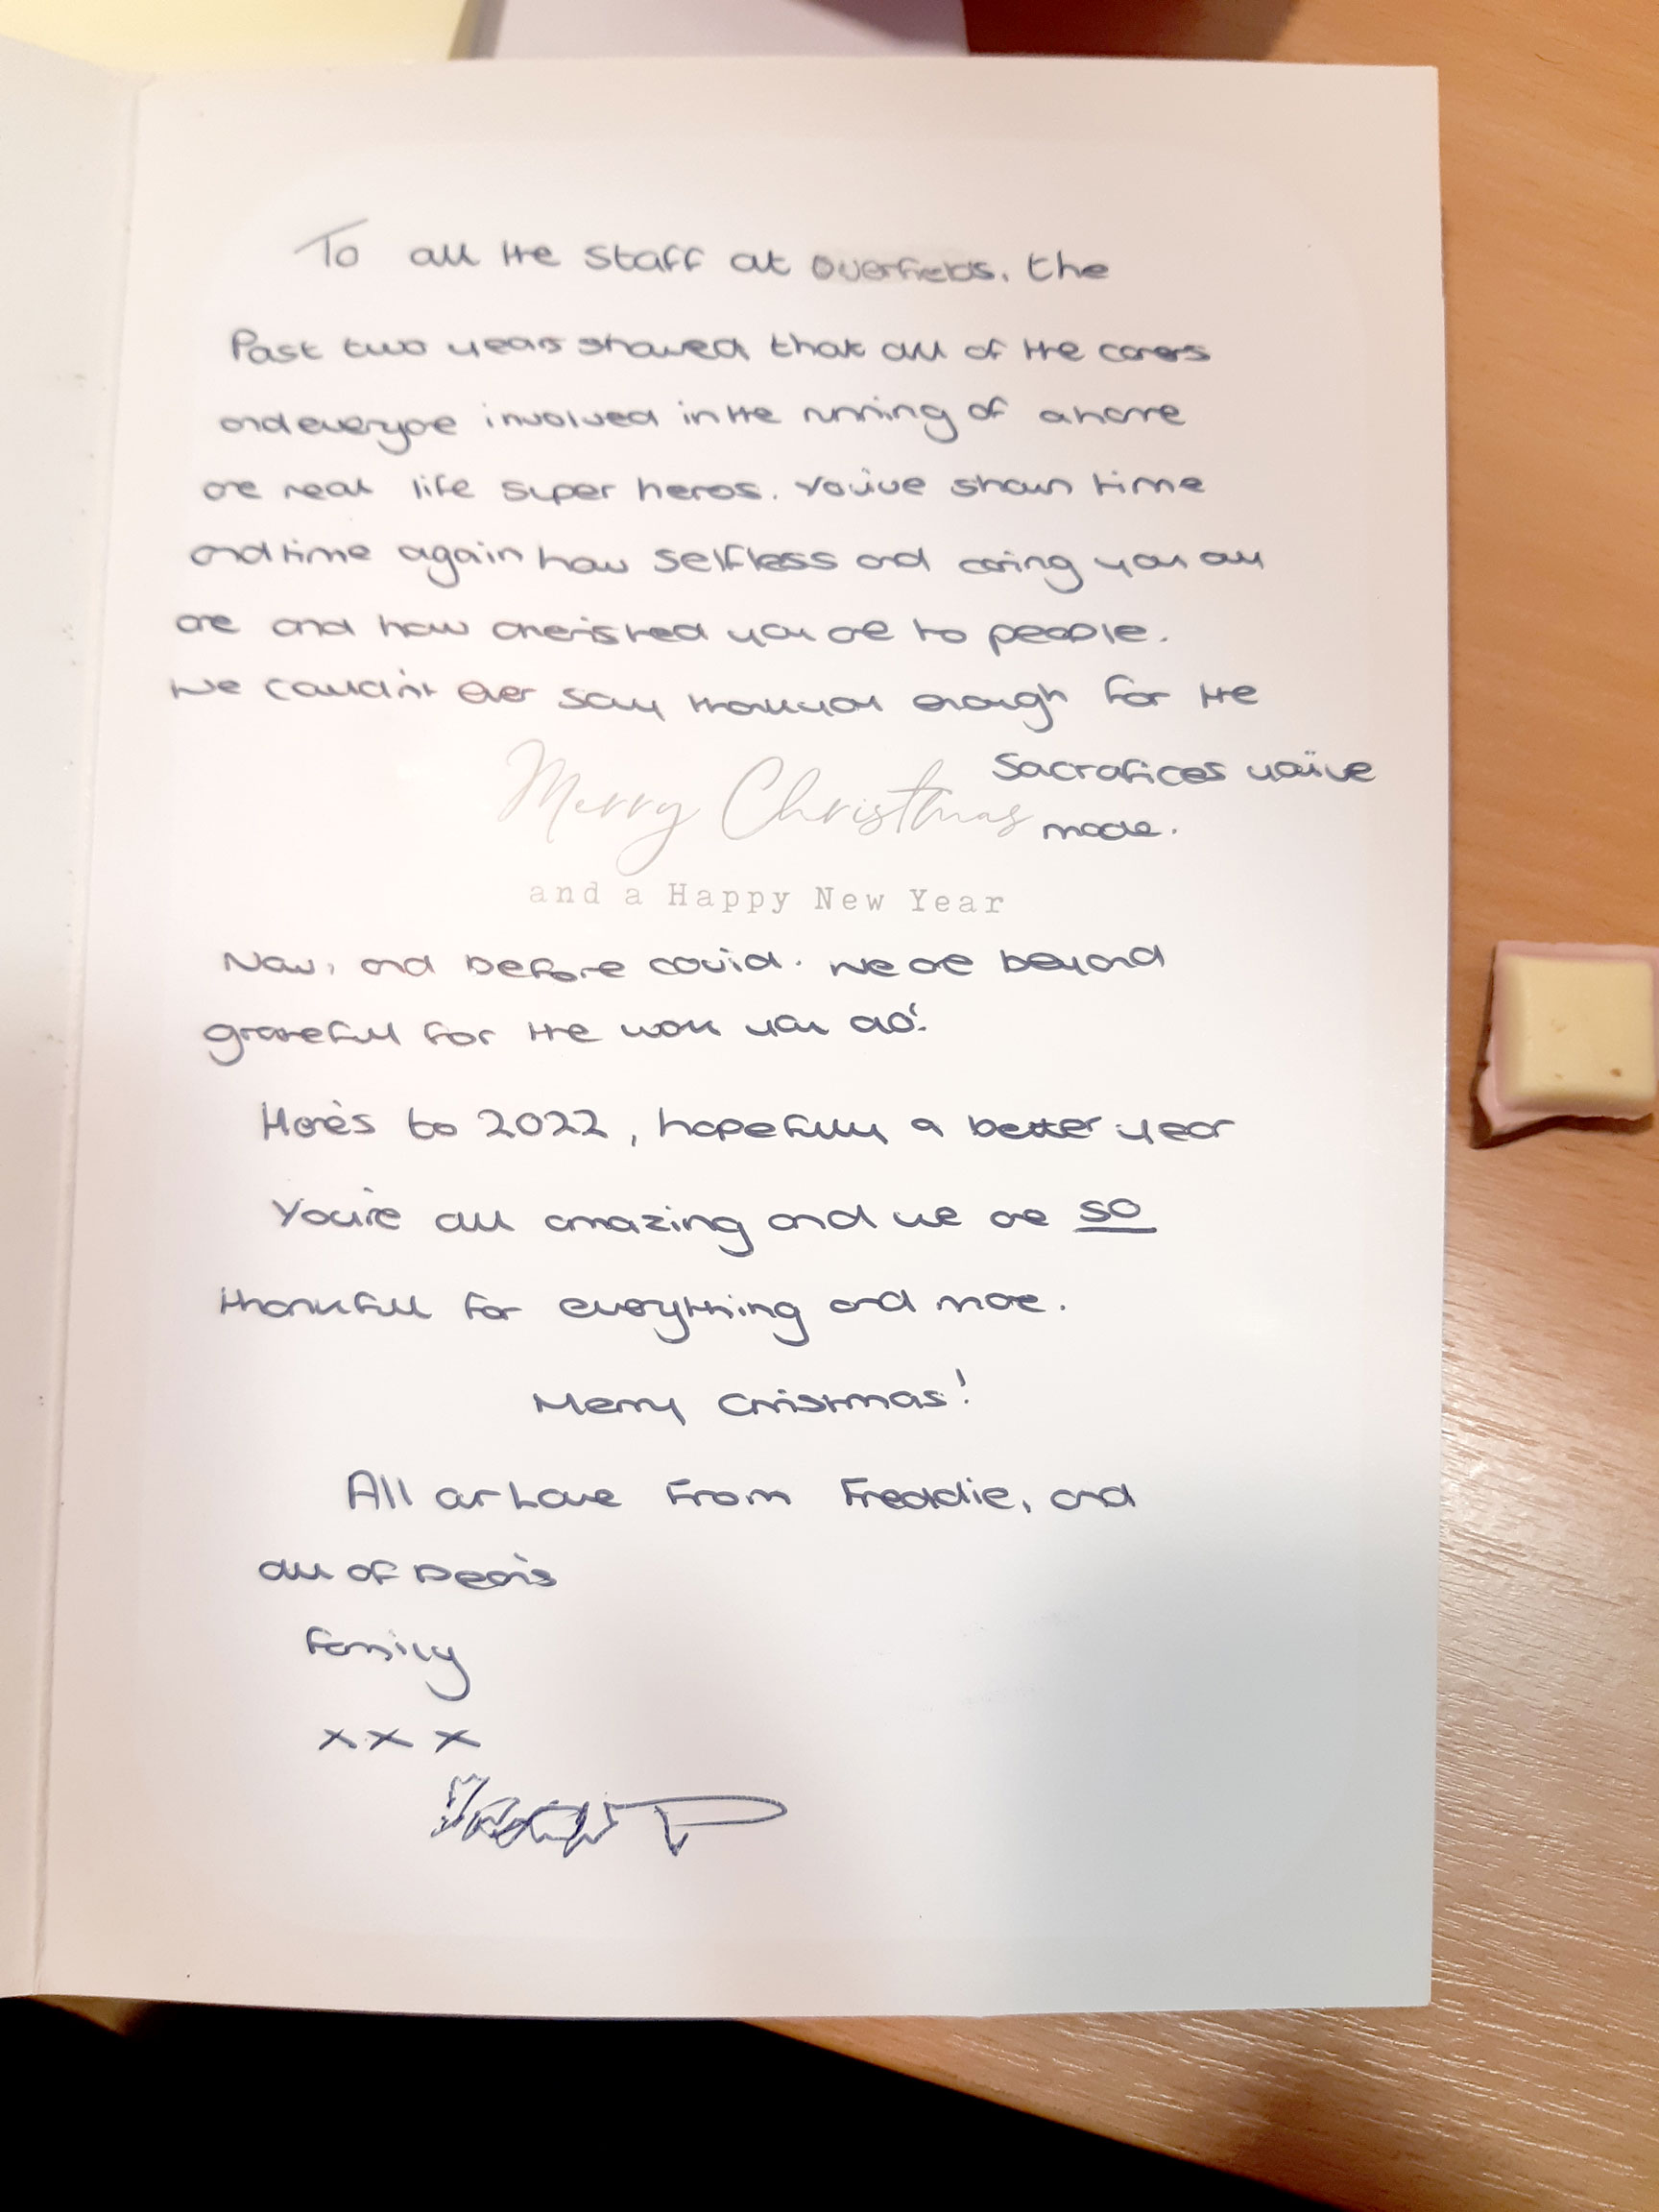 To all the staff at Overfields, the
Past two years showed that all of the carers
and everyone involved in the running of a home
are real life super heros. You've shown time
and time again how selfless and caring you all
are and how cherished you are to people.
We couldn't ever say thank you enough for the
Sacrafices you've
made.
Merry Christmas
and a Happy New Year
Now, and before covid. We are beyond
grateful for the work you do!
Here's to 2022, hopefully a better year
You're all amazing and we are so
thankfull for everything and more.
Merry Christmas!
All our Love From Freddie, and
all of
Family
xxx